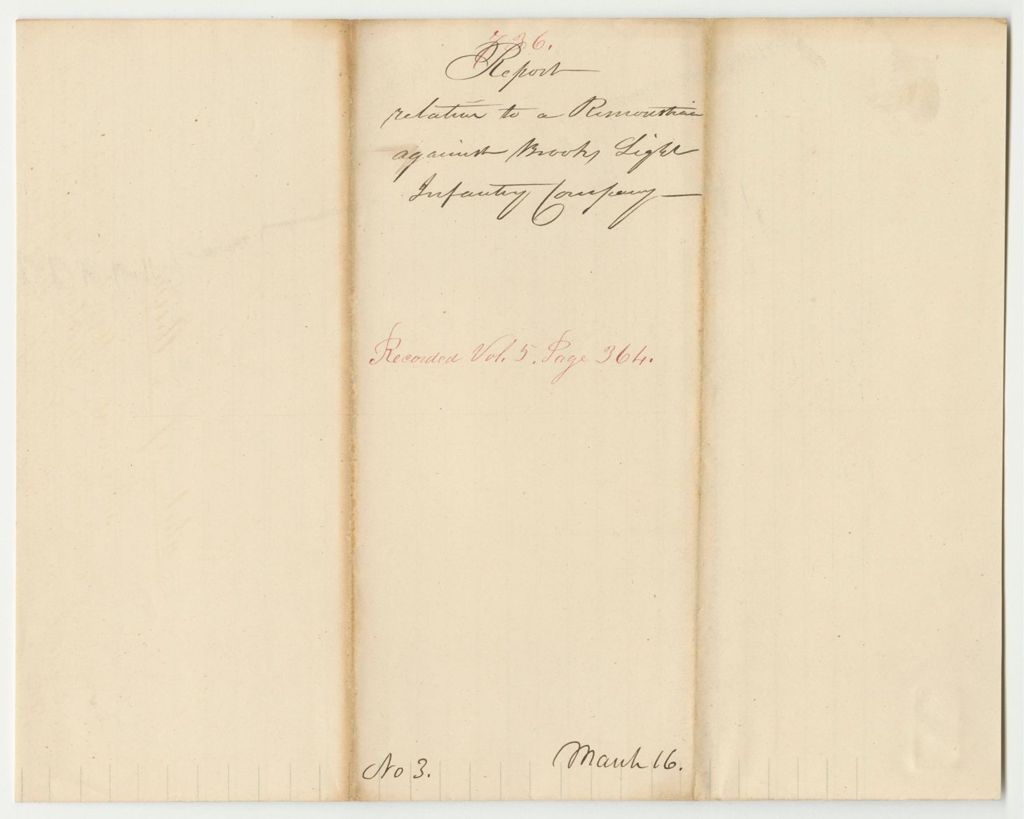 36.
Report
relative to a Remonstrance
against Brooks Light
Infantry Company
Recorded Vol. 5. Page 364.
No 3.
March 16.